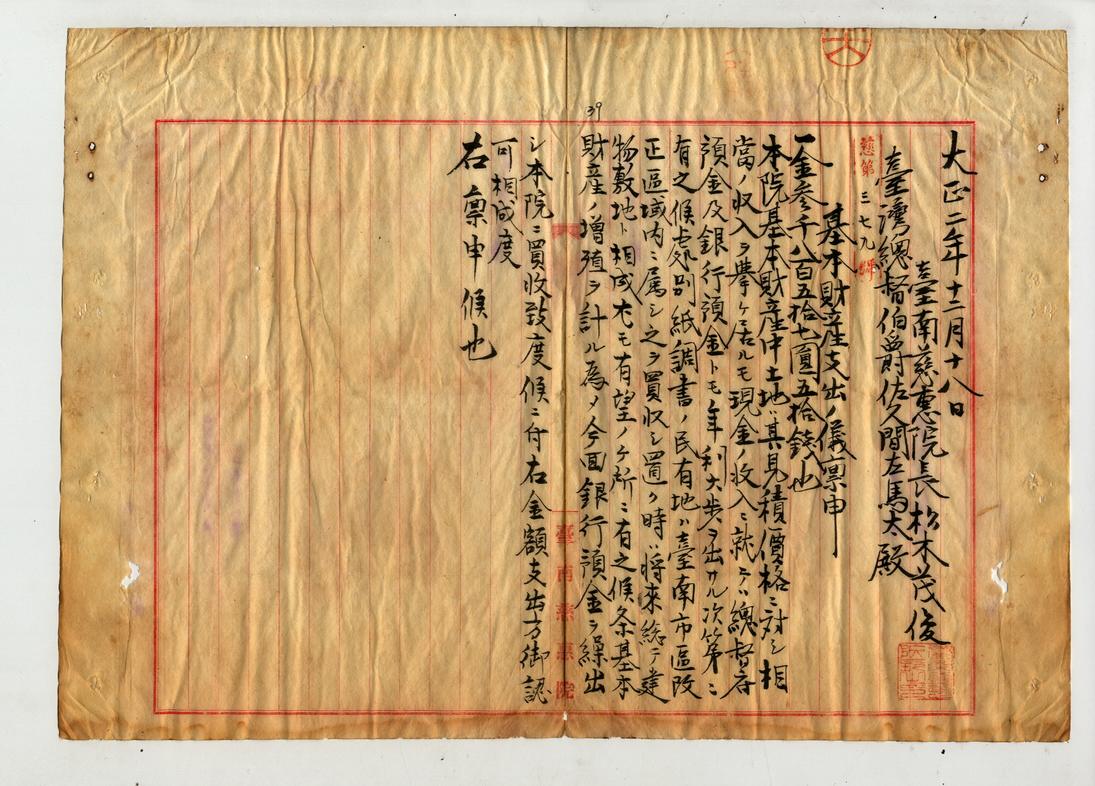 大正二年十二月十八日
臺南慈惠院長松木茂俊
臺灣總督伯爵佐久間左馬太殿
慈第三七九號
基本財産支出ノ儀禀申
一金參千八百五拾七圓五拾錢也
本院基本財産中土地ハ其見積價格ニ対シ相
當ノ收入ヲ擧ケ居ルモ現金ノ收入ニ就テハ總督府
預金及銀行預金トモ年利六歩ヲ出サル次第ニ
有之候處別紙調書ノ民有地ハ臺南市區改
正區域内ニ属シ之ヲ買収シ置ク時ハ将来総テ建
物敷地ト相成尤モ有望ノケ所ニ有之候条基本
39
財産ノ増殖ヲ計ル為メ今回銀行預金ヲ繰出
シ本院ニ買收致度候ニ付右金額支出方御認
可相成度
右禀申候也
臺南慈惠院